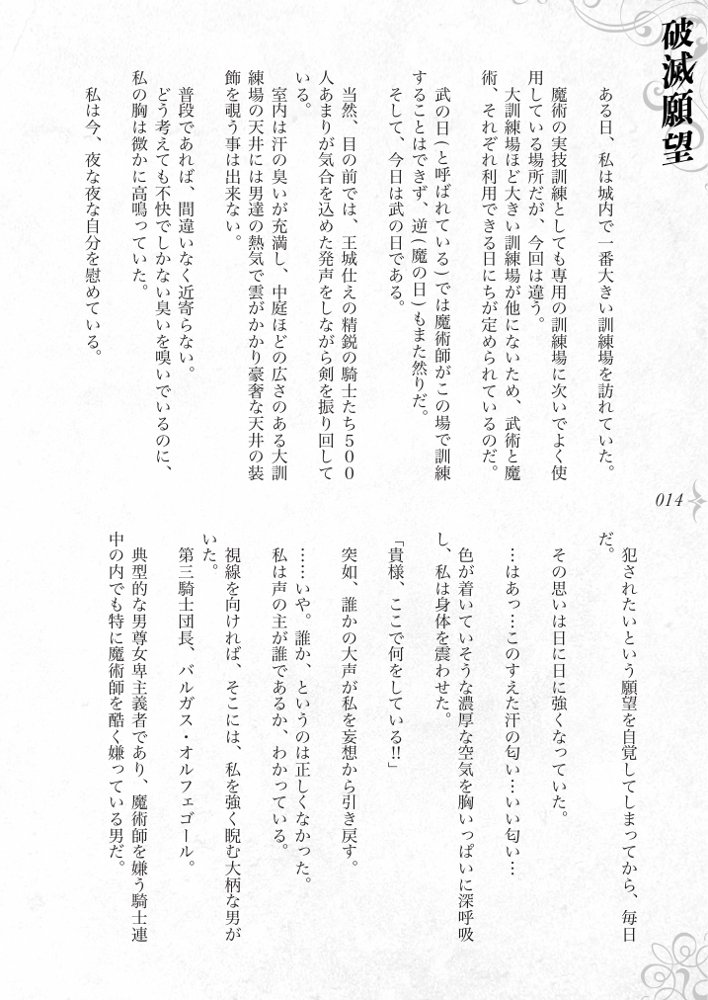 破滅願望
ある日、私は城内で一番大きい訓練場を訪れていた。
魔術の実技訓練としても専用の訓練場に次いでよく使
用している場所だが、今回は違う。
大訓練場ほど大きい訓練場が他にないため、武術と魔
術、それぞれ利用できる日にちが定められているのだ。
武の日(と呼ばれている)では魔術師がこの場で訓練
することはできず、逆(魔の日)もまた然りだ。
そして、今日は武の日である。
当然、目の前では、王城仕えの精鋭の騎士たち500
人あまりが気合を込めた発声をしながら剣を振り回して
いる。
室内は汗の臭いが充満し、中庭ほどの広さのある大訓
練場の天井には男達の熱気で雲がかかり豪奢な天井の装
飾を覗う事は出来ない。
普段であれば、間違いなく近寄らない。
どう考えても不快でしかない臭いを嗅いでいるのに、
私の胸は微かに高鳴っていた。
私は今、夜な夜な自分を慰めている。
014
犯されたいという願望を自覚してしまってから、毎日
だ。
その思いは日に日に強くなっていた。
…はあっ…このすえた汗の匂い…いい匂い…
色が着いていそうな濃厚な空気を胸いっぱいに深呼吸
し、私は身体を震わせた。
「貴様、ここで何をしている!!」
突如、誰かの大声が私を妄想から引き戻す。
……いや。誰か、というのは正しくなかった。
私は声の主が誰であるか、わかっている。
視線を向ければ、そこには、私を強く睨む大柄な男が
いた。
第三騎士団長、バルガス・オルフェゴール。
典型的な男尊女卑主義者であり、魔術師を嫌う騎士連
中の内でも特に魔術師を酷く嫌っている男だ。